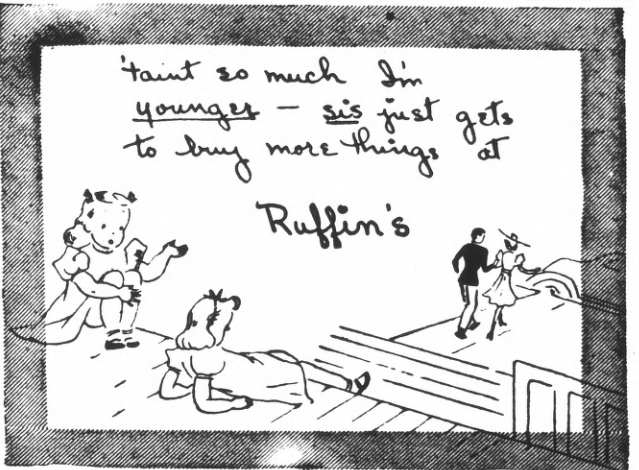 'taint so much I'm
younger – sis just gets
to buy more things at
Ruffin's